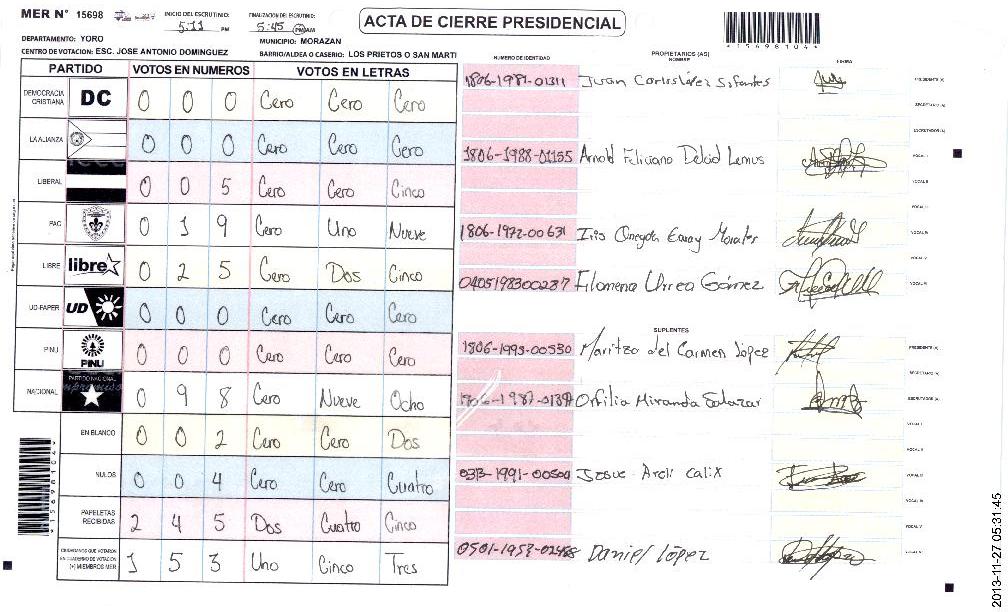 MER N° 15698
INICIO DEL ESCRUTINIO:
5:11 PM
FINALIZACION DEL ESCRUTINIO:
5:45 PM AM
ACTA DE CIERRE PRESIDENCIAL
*15698104*
DEPARTAMENTO: YORO
MUNICIPIO: MORAZAN
CENTRO DE VOTACION: ESC. JOSE ANTONIO DOMINGUEZ
BARRIO/ALDEA O CASERIO: LOS PRIETOS O SAN MARTI
PARTIDO VOTOS EN NUMEROS VOTOS EN LETRAS
DEMOCRACIA CRISTIANA DC 0 0 0 Cero Cero Cero
LA ALIANZA 0 0 0 Cero Cero Cero
LIBERAL 0 0 5 Cero Cero Cinco
PAC 0 1 9 Cero Uno Nueve
LIBRE libre 0 2 5 Cero Dos Cinco
UD-FAPER UD 0 0 0 Cero Cero Cero
PINU PINU 0 0 0 Cero Cero Cero
NACIONAL PARTIDO NACIONAL 0 9 8 Cero Nueve Ocho
EN BLANCO 0 0 2 Cero Cero Dos
NULOS 0 0 4 Cero Cero Cuatro
PAPELETAS RECIBIDAS 2 4 5 Dos Cuatro Cinco
CIUDADANOS QUE VOTARON EN CUADERNO DE VOTACION (+) MIEMBROS MER 1 5 3 Uno Cinco Tres
NUMERO DE IDENTIDAD PROPIETARIOS (AS) NOMBRE FIRMA
1806-1981-01311 Juan Carlos López PRESIDENTE (A)
SECRETARIO (A)
ESCRUTADOR (A)
1806-1988-01155 Arnold Feliciano Delcid Lemus VOCAL I
VOCAL II
VOCAL III
1806-1972-00631 Iris VOCAL IV
VOCAL V
0405198300287 Filomena Urrea Gómez VOCAL VI
SUPLENTES
1806-1993-00530 Maritza del Carmen López PRESIDENTE (A)
SECRETARIO (A)
Orfilia Miranda Salazar ESCRUTADOR (A)
VOCAL I
VOCAL II
0313-1991-00504 Josue Areli Calix VOCAL III
VOCAL IV
VOCAL V
Daniel López VOCAL VI
*15698104*
2013-11-27 05:31:45